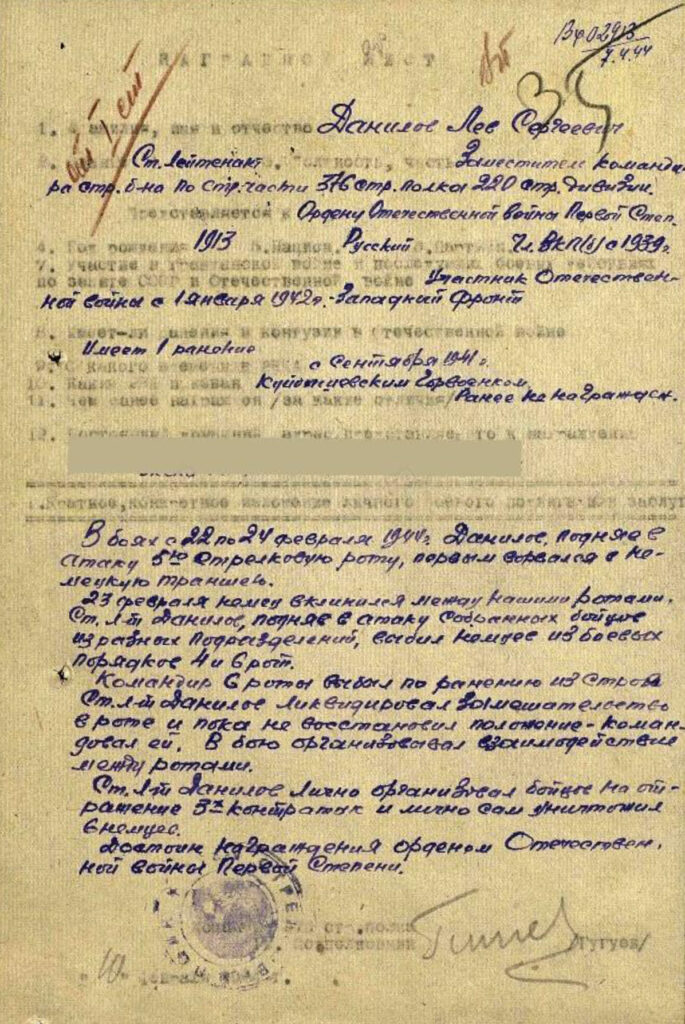 Вф02913
7.4.44
НАГРАДНОЙ ЛИСТ
1. Фамилия, имя и отчество Данилов Лев Сергеевич
Ст. Лейтенант должность, часть Заместитель команди-
ра стр. б-на по стр. части 376 стр. полка 220 стр. дивизии.
Представляется к Ордену Отечественной война Первой Степ.
4. Год рождения 1913 5. Национ. Русский Чл. ВКП(б) с 1939г.
7. Участие в гражданской войне и последующих боевых действиях
по защите СССР и Отечественной войне Участник Отечествен-
ной войны с 1 января 1942г. - Западный Фронт
8. Имеет-ли ранения и контузии в отечественной войне
Имеет 1 ранение
9. С какого времени с сентября 1941г.
10. Каким РВК призван Куйбышевским Горвоенком.
11. Чем ранее награжден /за какие отличия/ Ранее не награжден.
12.
1. Краткое, конкретное изложение личного боевого подвига или заслуг
В боях с 22 по 24 февраля 1944г. Данилов, подняв в
атаку 5ую стрелковую роту, первым ворвался в не-
мецкую траншею.
23 февраля немец вклинился между нашими ротами.
Ст. Л-т Данилов, подняв в атаку собранных бойцов
из разных подразделений, выбил немцев из боевых
порядков 4 и 6 рот.
Командир 6 роты выбыл по ранению из строя
Ст. Л-т Данилов ликвидировал замешательство
в роте и пока не восстановил положение - коман-
довал ей. В бою организовывал взаимодействие
между ротами.
Ст. Л-т Данилов лично организовал бойцов на от-
ражение 3х контратак и лично сам уничтожил
6 немцев.
Достоин награждения орденом Отечествен.
ной войны Первой Степени.
стр. полка
подполковник /Тугуев/
"10"